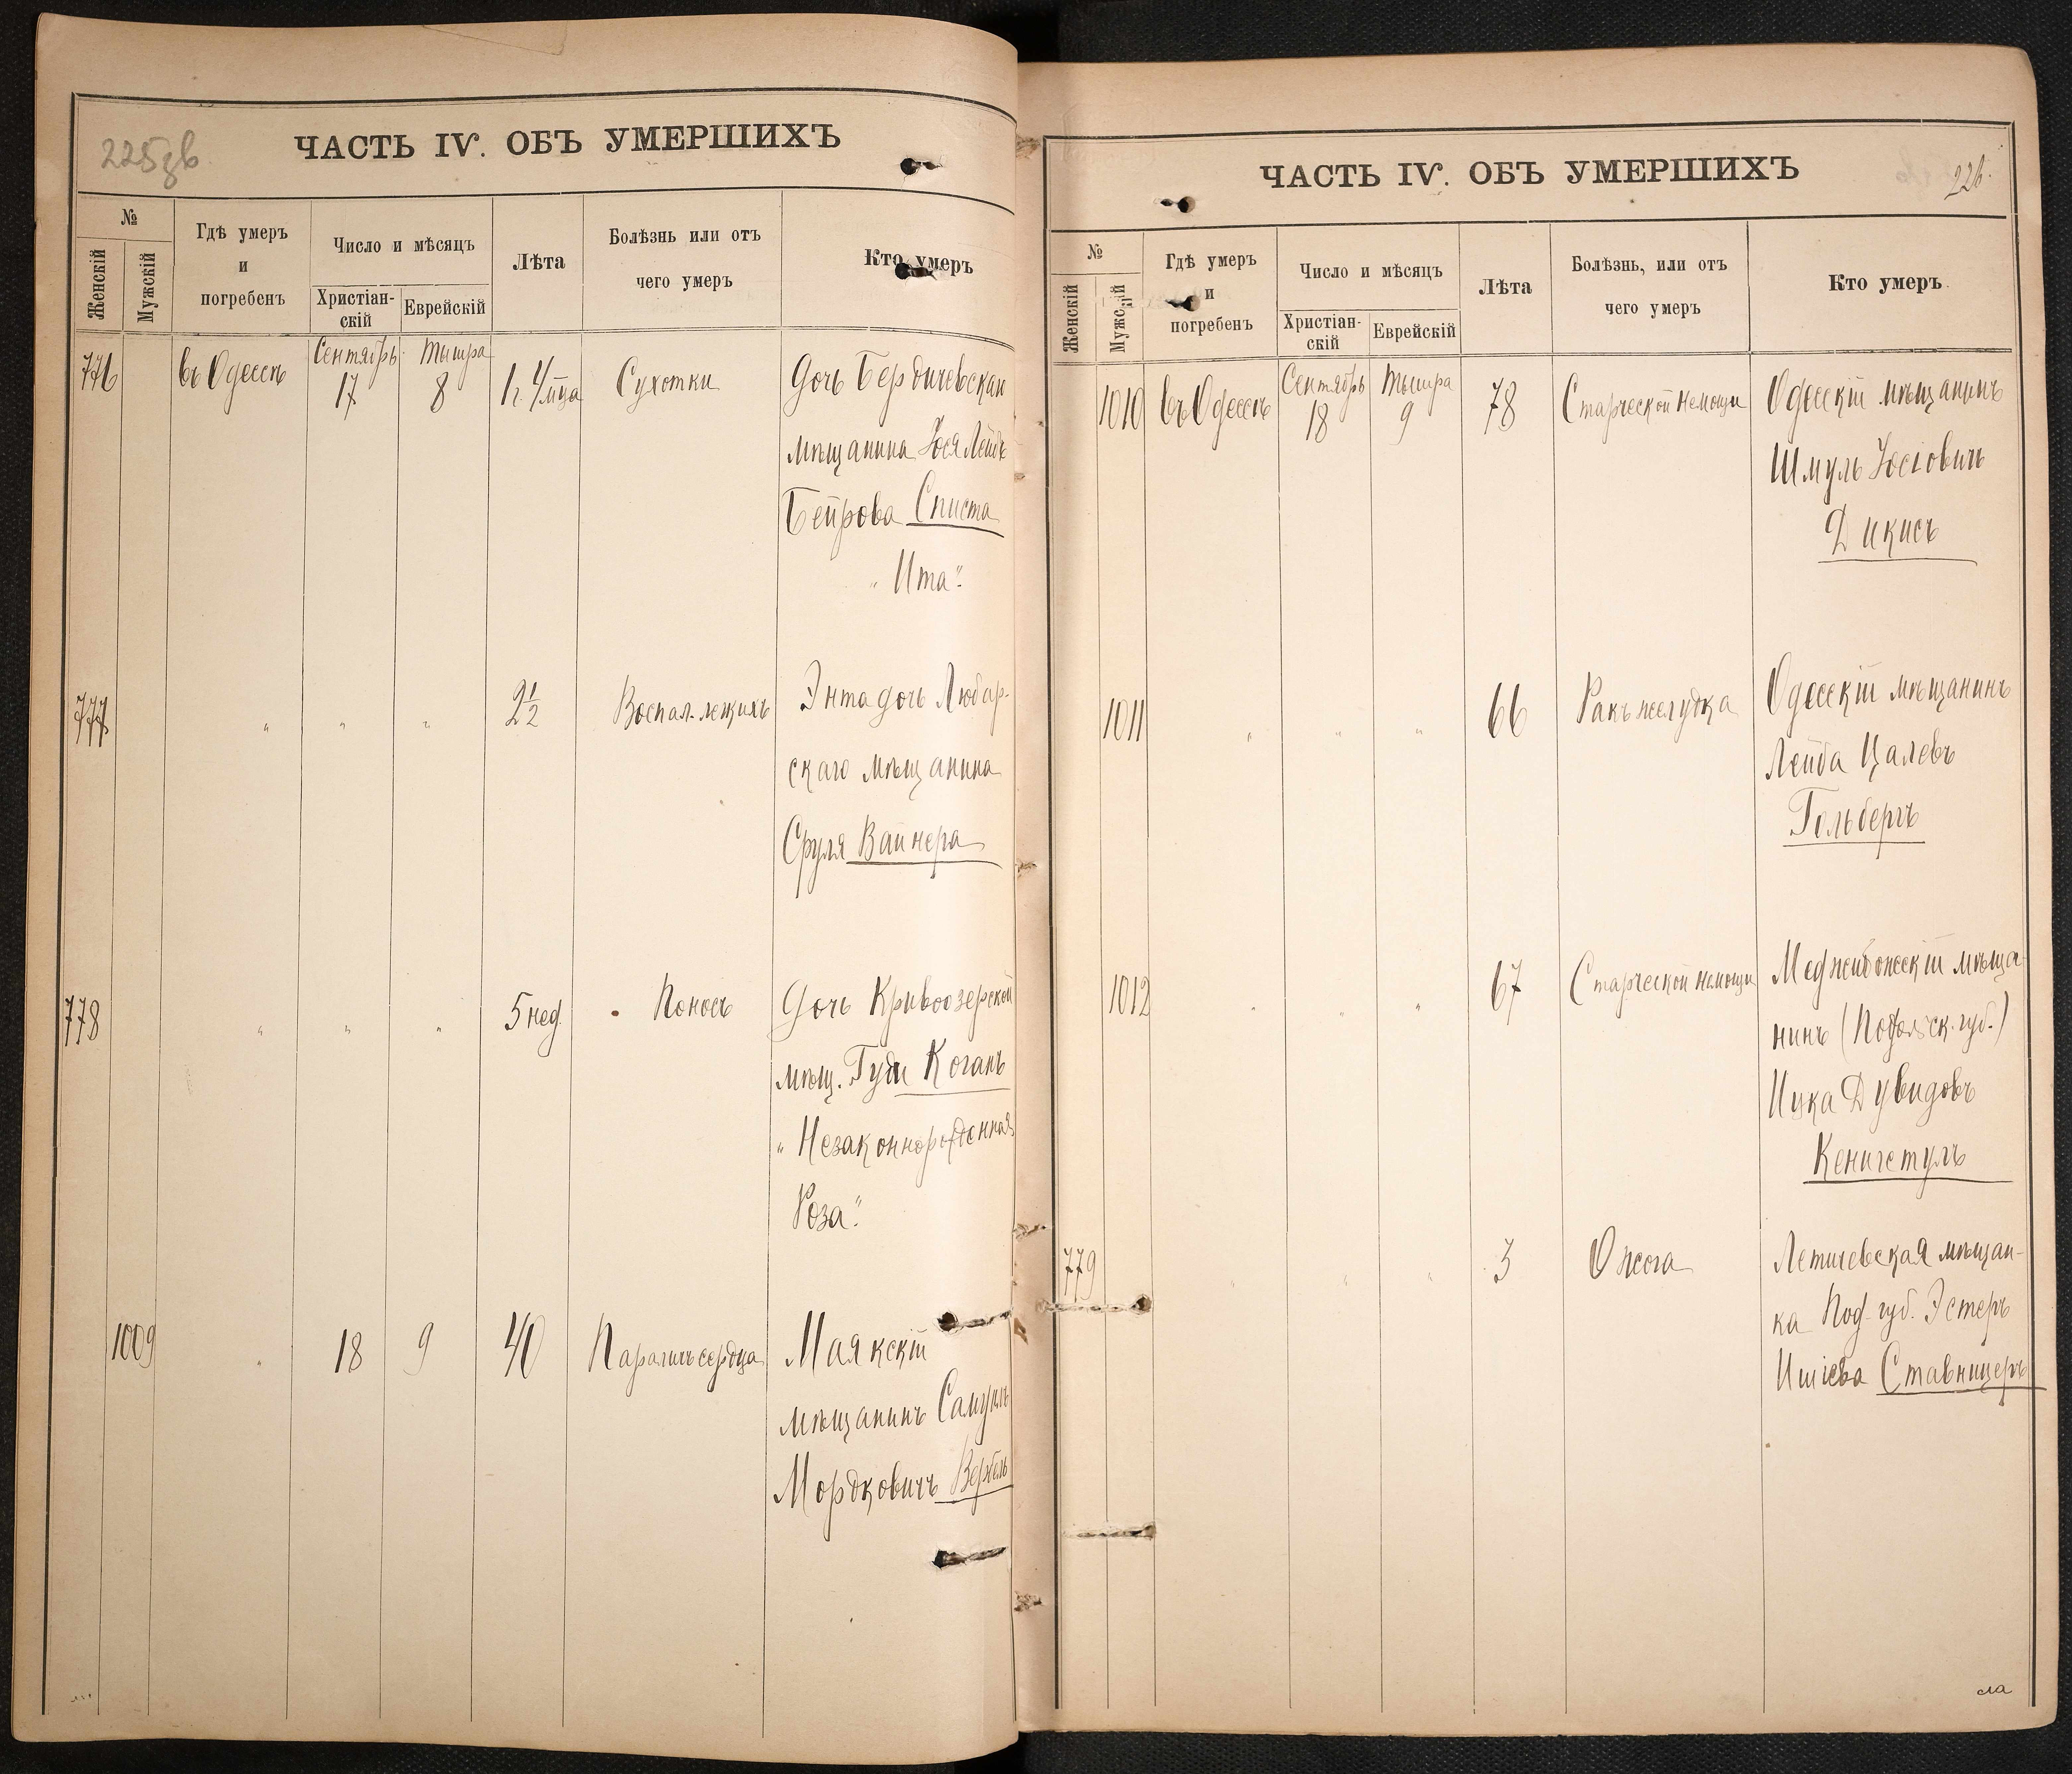 225 зв
ЧАСТЬ IV. ОБЪ УМЕРШИХЪ
№
Женскій
Мужскій
Гдѣ умеръ
и
погребенъ
Число и мѣсяцъ
Христіан-
скій
Еврейскій
Лѣта
Болѣзнь или отъ
чего умеръ
Кто умеръ
776 въ Одессѣ Сентябрь 17 Тышра 8 1 г. 4 м-ца Сухотки Дочь Бердичевскаго
мѣщанина Іося Лейбъ
Беирова Списта
"Ита".
777 " " " 2 1/2 Воспал. легкихъ Энта дочь Любар-
скаго мѣщанина
Сруля Вайнера
778 " " " 5 нед. Поносъ Дочь Кривоозерской
мѣщ. Гуди Коганъ
"Незаконнорожденная
Роза".
1009 " 18 9 40 Параличъ сердца Маякскій
мѣщанинъ Самуилъ
Мордковичъ Вербель
226.
ЧАСТЬ IV. ОБЪ УМЕРШИХЪ
№
Женскій
Мужскій
Гдѣ умеръ
и
погребенъ
Число и мѣсяцъ
Христіан-
скій
Еврейскій
Лѣта
Болѣзнь, или отъ
чего умеръ
Кто умеръ
1010 въ Одессѣ Сентябрь 18 Тышра 9 78 Старческой немощи Одесскій мѣщанинъ
Шмуль Іосіовичъ
Дикисъ
1011 " " " 66 Ракъ желудка Одесскій мѣщанинъ
Лейба Цалевъ
Гольбергъ
1012 " " " 67 Старческой немощи Меджибожскій мѣща-
нинъ (Подольск. губ.)
Ицка Дувидовъ
Кенигстуль
779 " " " 3 Ожога Летичевская мѣщан-
ка Под. губ. Эстеръ
Ишіева Ставницеръ